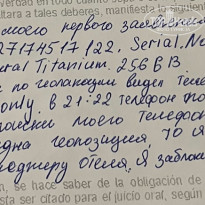 verdad en todo cuanto
ultara a tales deberes, manifiesta lo siguiente
моего первого заявления
27174517122. Serial. No
ural Titanium. 256 B B.
по геолокации виден теле
only. в 21:22 телефон по
поиски моего телефон
одна геопозиция, то я
неджеру отеля, я заблок
se hace saber de la obligación de
sta ser citado para el juicio oral, según